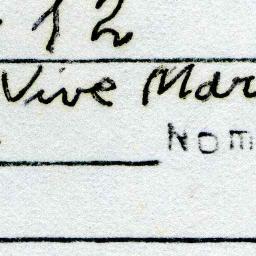 12
Vive Mar
Nom